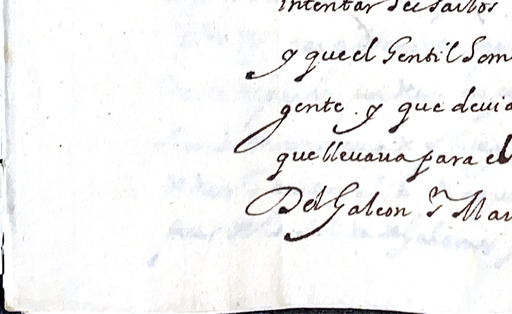 intentar
y que el Gentil hom
gente. y que devia
que llevava para el
Del Galeon Sn Mar